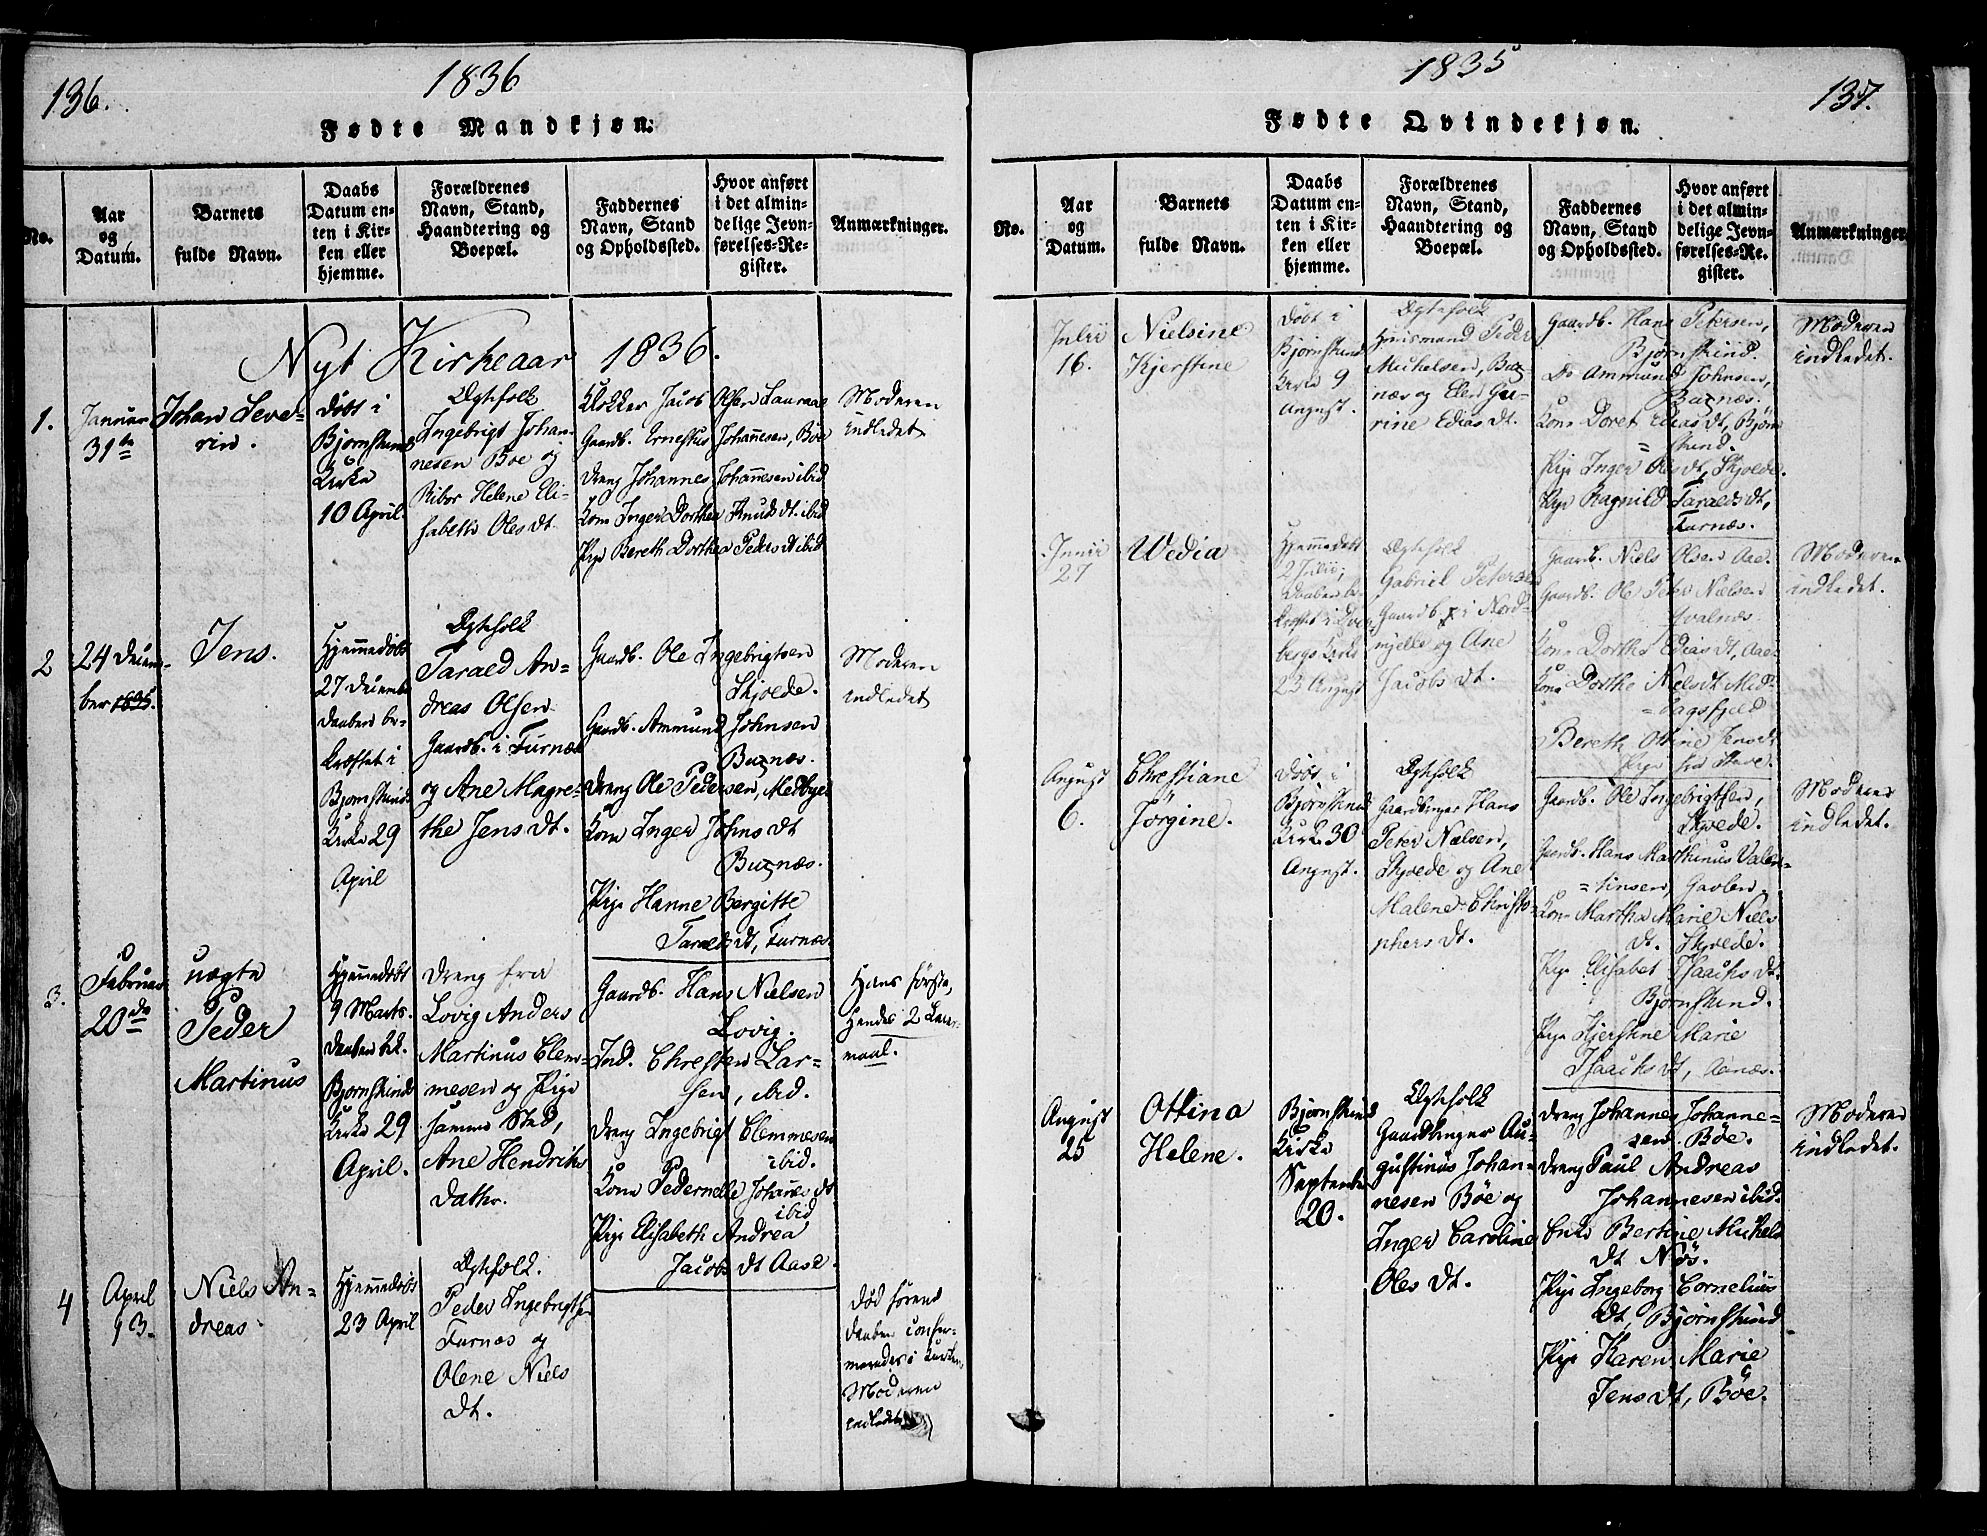 136.
1836
Fødte Mandkjøn.
No.
Aar
og
Datum.
Barnets
fulde Navn.
Daabs
Datum en-
ten i Kir-
ken eller
hjemme.
Forældrenes
Navn, Stand,
Haandtering og
Boepæl.
Faddernes
Navn, Stand
og Opholdssted.
Hvor anført
i det almin-
delige Jevn-
førelses-Re-
gister.
Anmærkninger.
Nyt Kirkeaar 1836.
1.
Januar
31te
Johan Seve-
rin.
Døbt i
Bjørnskinds
Kirke
10 April.
Ægtefolk
Ingebrigt Johan-
nesen Boe og
Ribor Helene Eli-
sabeth Olesdt.
Klokker Jacob Olsen
Gaardb. Ernestus Johannesen, Böe
Dreng Johannes Johannesen ibid
Kone Inger Dorthea Knudsdt. ibid
Pige Bereth Dorthea Pedersdt ibid
Moderen
indledet
2
24 Decem-
ber 1835.
Jens.
Hjemmedøbt
27 Decembr
Daaben be-
kræftet i
Bjørnskinds
Kirke 29
April
Ægtefolk
Tarald An-
dreas Olsen
Gaardb. i Furnæs
og Ane Magre-
the Jensdt.
Gaardb. Ole Ingebrigtsen
Skjoede.
Gaardb. Ammund Johnsen
Buxnæs.
Dreng Ole Pedersen, Medbye
Kone Inger Johnsdt
Buxnæs.
Pige Hanne Bergitte
Taraldsdt, Furnæs.
Moderen
indledet
3.
Februar
20de
uægte
Peder
Martinus
Hjemmedøbt
9 Marts.
Daaben bek.
Bjørnskinds
Kirke 29
April.
Dreng fra
Lovig Anders
Martinus Clem-
mesen og Pige
samme Sted,
Ane Hendriks
datter.
Gaardb. Hans Nielsen
Lovig.
Ind. Chresten Lar-
sen, ibid.
Dreng Ingebrigt Clemmesen
ibid.
Kone Pedernelle Johannesdt
ibid
Pige Elisabeth Andrea
Jacobsdt Aase.
Hans første,
Hendes 2 Leier-
maal.
4
April
13.
Niels An-
dreas
Hjemmedøbt
23 April
Ægtefolk.
Peder Ingebrigtsen
Furnæs og
Olene Niels
dt.
Død førend
Daaben confir-
meredes i Kirken,
Moderen
indledet
1835
137.
Fødte Qvindekjøn.
No.
Aar
og
Datum.
Barnets
fulde Navn.
Daabs
Datum en-
ten i Kir-
ken eller
hjemme.
Forældrenes
Navn, Stand,
Haandtering og
Boepæl.
Faddernes
Navn, Stand
og Opholdssted.
Hvor anført
i det almin-
delige Jevn-
førelses-Re-
gister.
Anmærkninger
Julii
16.
Nielsine
Kjerstine
Døbt i
Bjørnskind
Kirke 9
August.
Ægtefolk
Huusmand Peder
Mikelsen, Bux-
næs og Elen Gu-
rine Ediasdt.
Gaardb. Hans Petersen,
Bjørnskind.
Do Ammund Johnsen,
Buxnæs.
Kone Doret Ediasdt, Bjørn
= skind.
Pige Inger Olesdt, Skjoede.
Pige Ragnild Taraldsdt,
Furnæs.
Moderen
indledet.
Junii
27
Wedia
Hjemmedøbt
2 Julii;
Daaben be-
kræftet i
bergs Kirke
23 August
Ægtefolk
Gabriel Petersen
Gaardb. i Nord-
myelle og Ane
Jacobsdt.
Gaardb. Niels Olsen Aae-
Gaardb. Ole Peter Nielsen
Avalnæs.
Kone Dorthe Ediasdt, Aae-
Kone Dorthe Nielsdt Mid-
= dagsfjeld
Bereth Ottine Jensdt
Pige fra
Moderen
indledet.
August
6.
Chrestiane
Jörgine.
Døbt i
Bjørnskind
Kirke 30
August.
Ægtefolk
Gaardbruger Hans
Peter Nielsen,
Skjoede og Ane
Malene Christo-
phersdt.
Gaardb. Ole Ingebrigtsen,
Skjoede.
Gaardb. Hans Marthinus Valen-
= tinsen, Gavlen.
Kone Martha Marie Niels
dt. Skjoede.
Pige Elisabet Isaachsdt.
Bjørnskind.
Pige Kjerstine Marie
Isaachsdt, Aanæs.
Moderen
indledet.
August
25
Ottina
Helene.
Bjørnskind
Kirke
September
20.
Ægtefolk
Gaardbruger Au-
gustinus Johan-
nesen Böe og
Inger Caroline
Olesdt.
Dreng Johannes Johanne-
sen. Böe.
Dreng Paul Andreas
Johannesen ibid.
Enke Bertine Mikels
dt Nös.
Pige Ingeborg Cornelius
dt, Bjørnskind
Pige Karen Marie
Jensdt, Böe.
Moderen
indledet.